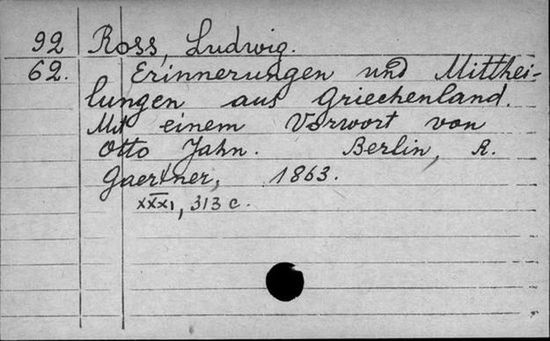 92 Ross, Ludwig.
62. Erinnerungen und Mitthei-
lungen aus Griechenland.
Mit einem Vorwort von
Otto Jahn. Berlin, R.
Gaertner, 1863.
XXXI, 313 c.